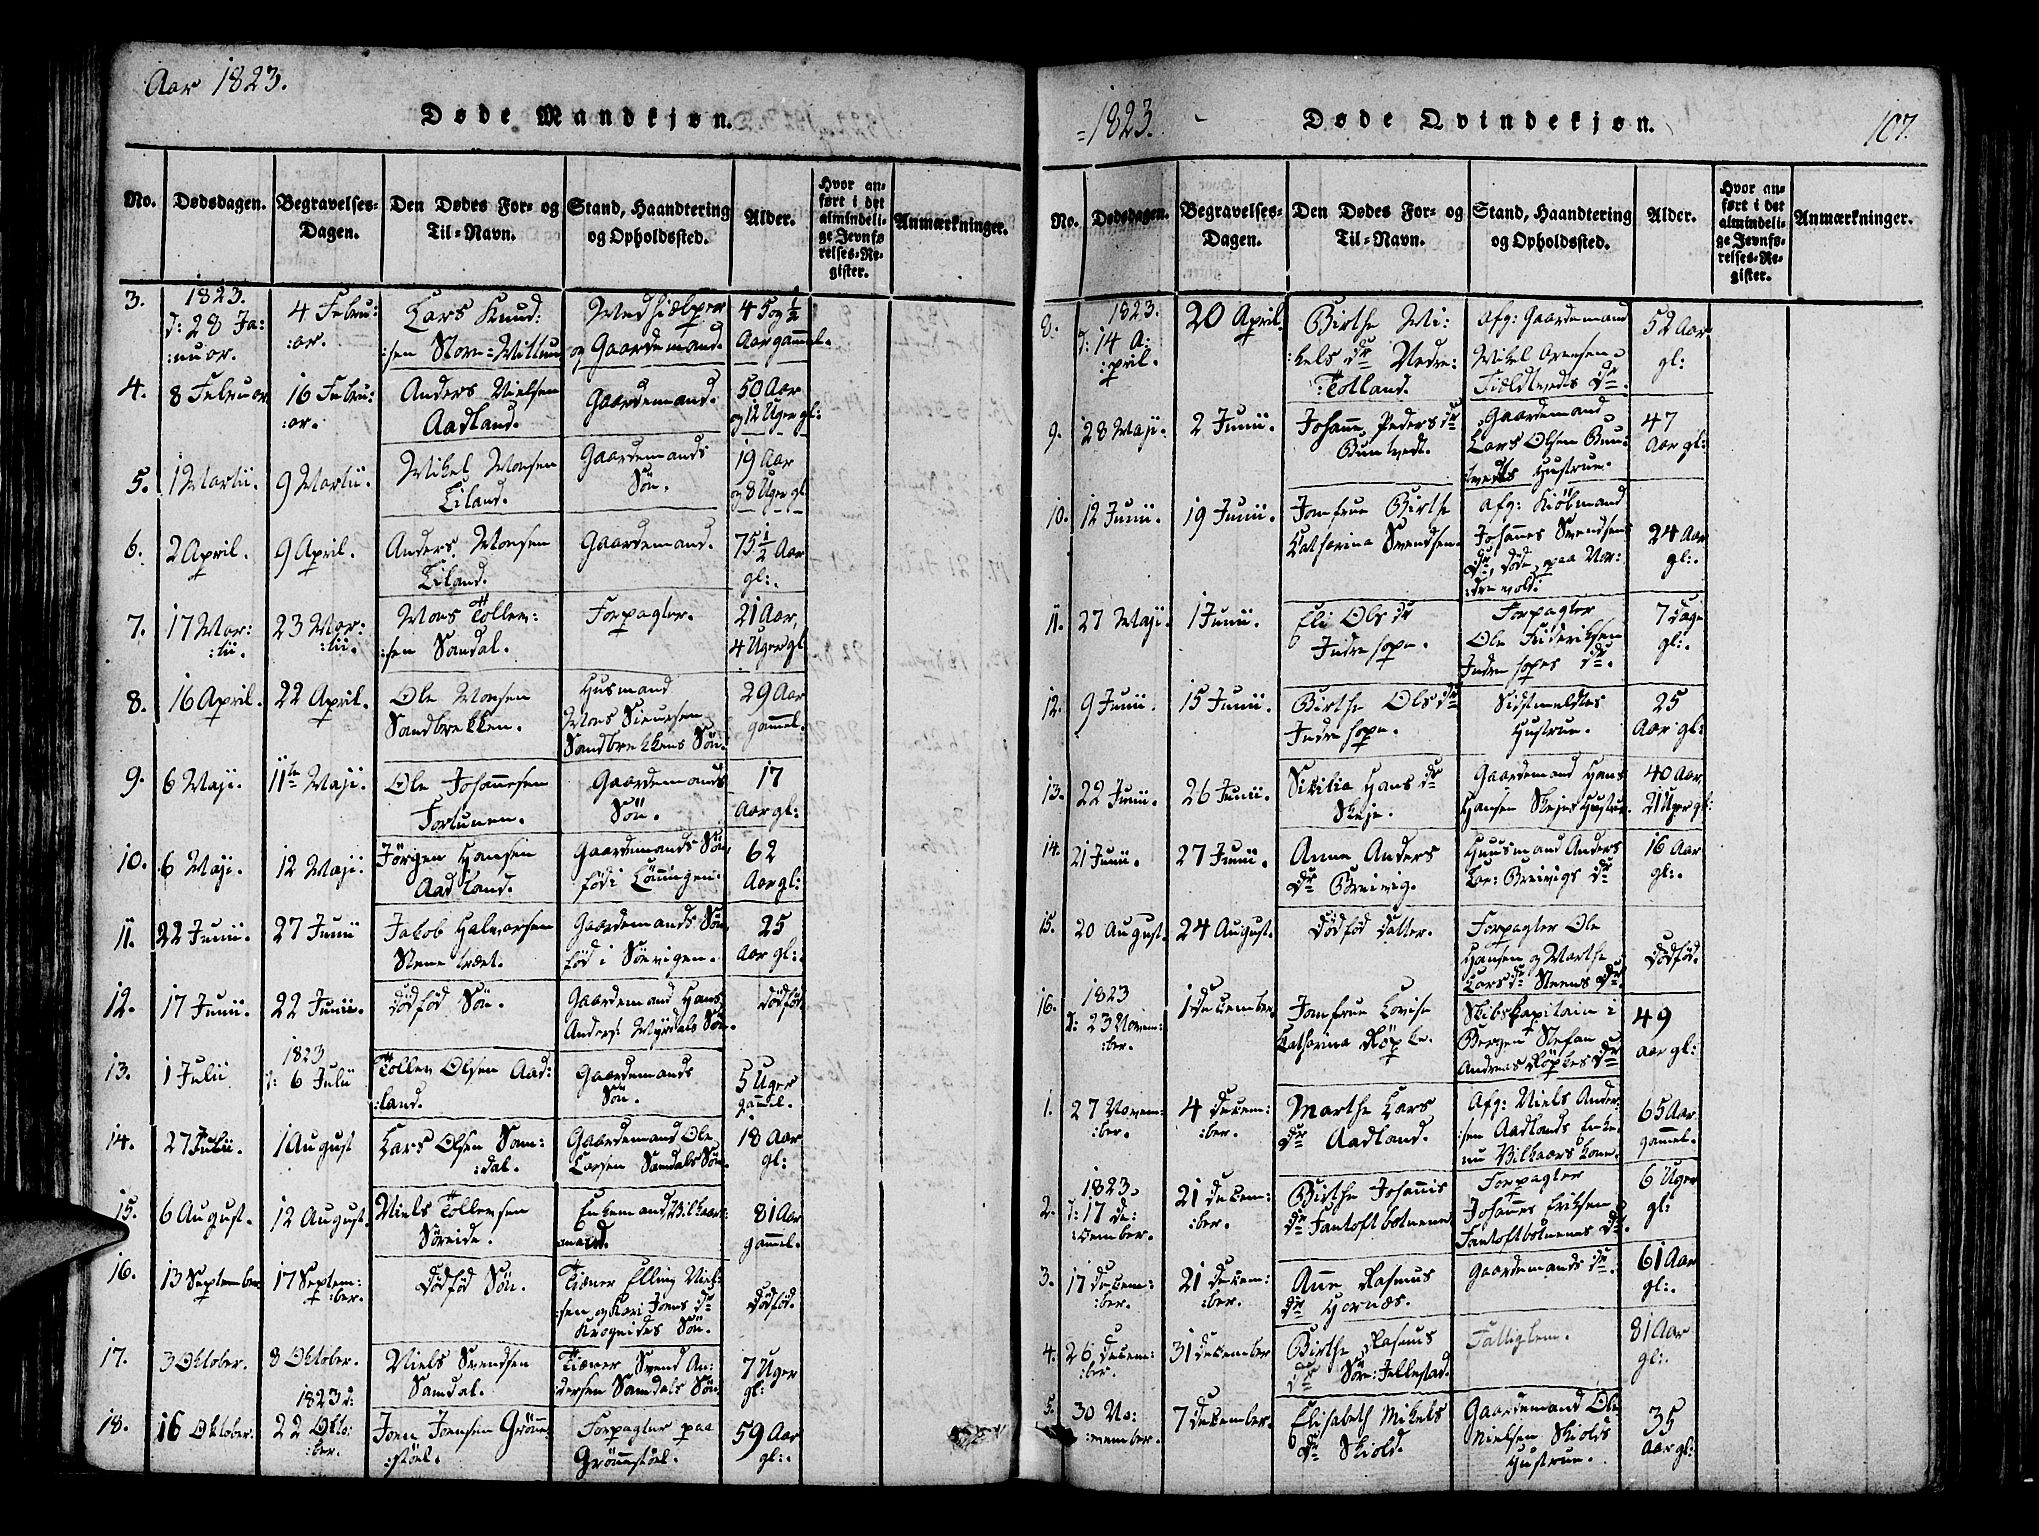 Aar 1823.
Døde Mandkjøn.
No.
Dødsdagen.
Begravelses-
Dagen.
Den Dødes For- og
Til-Navn.
Stand, Haandtering
og Opholdssted.
Alder.
Hvor an-
ført i det
almindeli-
ge Jevnfø
relses-Re-
gister.
Anmærkninger.
3.
1823.
d: 28 Ja:
:nuar.
4 Febru:
:ar.
Lars Knud:
:sen Store=Milde
Medhielper
og Gaardemand.
45 og ½
Aar gammel.
4.
8 Februar
16 Febru:
:ar.
Anders Nielsen
Aadland.
Gaardemand.
50 Aar
og 12 Uger gl:
5.
1 Martii.
9 Martii.
Mikel Monsen
Liland.
Gaardemands
Søn.
19 Aar
og 8 Uger gl
6.
2 April.
9 April.
Anders Monsen
Liland.
Gaardemand.
75 ½ Aar
gl:.
7.
17 Mar:
:tii.
23 Mar:
:tii.
Mons Tollev:
:sen Sandal.
Forpagter.
21 Aar,
4 Uger gl
8.
16 April.
22 April.
Ole Monsen
Sandbrekken.
Husmand
Mons Siursen
Sandbrekkens Søn.
29 Aar
gammel.
9.
6 Maji.
11te Maji.
Ole Johannesen
Fortunen.
Gaardemands
Søn.
17
Aar gl:
10.
6 Maji.
12 Maji.
Jørgen Hansen
Aadland.
Gaardemands Søn,
fød i Lønningen.
62
Aar gl:
11.
22 Junii.
27 Junii
Jakob Halvorsen
Stenetræet.
Gaardemands Søn
fød i Sørvigen.
25
Aar gl:.
12.
17 Junii
22 Junii.
Dødfød Søn.
Gaardemand Hans
Anders: Myrdals Søn.
Dødfød
13.
1 Julii
1823
d: 6 Julii
Tollev Olsen Aad:
:land.
Gaardemands
Søn.
5 Uger
gammel.
14.
27 Julii.
1 August
Lars Olsen San:
:dal.
Gaardemand Ole
Larsen Samdals Søn.
18 Aar
gl:
15.
6 August.
12 August.
Niels Tollevsen
Søreide.
Enkemand Vilkaars:
mand.
81 Aar
gammel.
16.
13 September
17 Septem:
:ber.
Dødfød Søn.
Tiener Elling Niel:
:sen og Kari Jons Dr
Krogeides Søn.
Dødfød.
17.
3 Oktober.
8 Oktober.
Niels Svendsen
Samdal.
Tiener Svend An:
:dersen Samdals Søn
7 Uger
gl:
18.
16 Oktober.
1823 d:
22 Okto:
:ber.
Joen Joensen Grønne
:støel.
Forpagter paa
Grønnestøel.
59 Aar
gl:.
=1823.
Døde Qvindekjøn.
107.
No.
Dødsdagen.
Begravelses-
Dagen.
Den Dødes For- og
Til-Navn.
Stand, Haandtering
og Opholdssted.
Alder.
Hvor an-
ført i det
almindeli-
ge Jevnfø-
relses-Re-
gister.
Anmærkninger.
8.
1823.
d: 14 A:
:pril.
20 April.
Birthe Mi:
:kels Dr Nedre:
:Tolland.
Afg: Gaardemand
Mikel Arnesen
Fieldtvedts Dr.
52 Aar
gl:
9.
28 Maji.
2 Junii.
Johanne Peders Dr
Buntvedt.
Gaardemand
Lars Olsen Bun:
tvedts Hustrue.
47
Aar gl:
10.
12 Junii.
19 Junii.
Jomfrue Birthe
Catharina Svendsen.
Afg: Kiøbmand
Johannes Svendsens
Dr, døde paa Nor:
:drevold:
24 Aar
gl:.
11.
27 Maji.
1 Junii.
Eli Ols Dr
Indrehope.
Forpagter
Ole Frideriksen
Indrehopes Dr.
7 Dage
gl:.
12.
9 Junii.
15 Junii.
Birthe Ols Dr
Indrehope.
Sidstmeldtes
Hustrue.
25
Aar gl:
13.
22 Junii.
26 Junii.
Sikilia Hans Dr
Skeje.
Gaardemand Hans
Hansen Skejes Hustrue
40 Aar
21 Uger gl:
14.
21 Junii.
27 Junii.
Anna Anders
Dr Breivig.
Huusmand Anders
Lar: Breivigs Dr
16 Aar
gl:.
15.
20 August.
24 August.
Dødfød Datter.
Forpagter Ole
Hansen og Marthe
Lars Dr Steens Dr.
Dødfød.
16.
1823
d: 23 Novem:
:ber.
1 December.
Jomfrue Lovise
Catharina Røpke.
Skibskapitain i
Bergen Stefan
Andreas Røpkes Dr
49
Aar gl:
1.
27 Novem:
:ber.
4 Decem:
:ber.
Marthe Lars
Dr Aadland.
Afg: Niels Ander:
:sen Aadlands Enke
nu Vilkaars kone.
65 Aar
gammel.
2.
1823.
d: 17 De:
:cember.
21 Decem:
:ber.
Birthe Johannis
Dr Fantoftbotnene
Forpagter
Johannes Eriksen
Fantoftbotnenes Dr.
6 Uger
gl:
3.
17 Decem:
:ber.
21 Decem:
:ber.
Anne Rasmus
Dr Hornæs.
Gaardemands Dr.
61 Aar
gl:.
4.
26 Decem:
:ber.
31 December
Birthe Rasmus
Dr Søre:Jellestad.
Fattiglem.
81 Aar
gl:.
5.
30 No:
:vember.
7 December.
Elisabeth Mikels
Dr Skiold.
Gaardemand Ole
Nielsen Skiolds
Hustrue.
35
Aar gl: